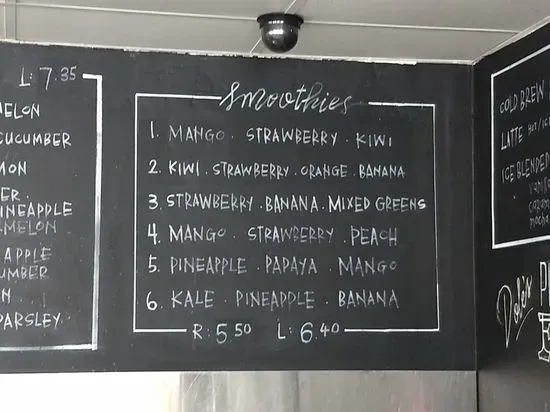 L: 7.35
ELON
CUCUMBER
MON
ER
INEAPPLE
MELON
APPLE
UMBER
N
PARSLEY
Smoothies
1. MANGO . STRAWBERRY . KIWI
2. KIWI . STRAWBERRY . ORANGE . BANANA
3. STRAWBERRY . BANANA . MIXED GREENS
4. MANGO . STRAWBERRY . PEACH
5. PINEAPPLE . PAPAYA . MANGO
6. KALE . PINEAPPLE . BANANA
R: 5.50 L: 6.40
COLD BREW
LATTE HOT/ICE
ICE BLENDED